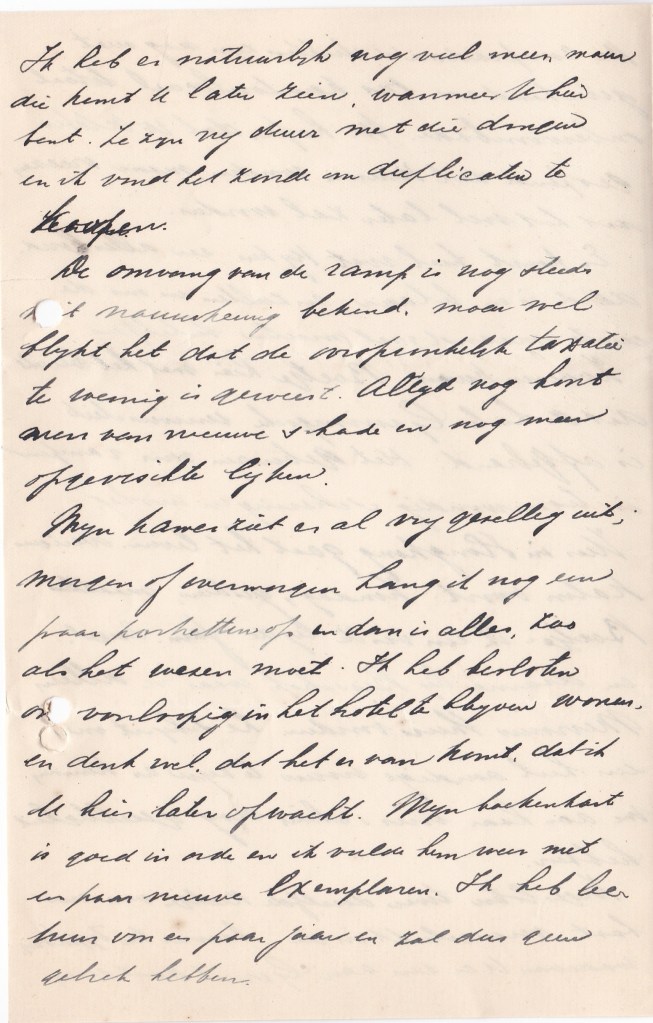 Ik heb er natuurlijk nog veel meer, maar
die komt U later zien, wanneer U hier
bent. Ze zijn vrij duur met die dingen
en ik vond het zonde om duplicaten te
koopen.
De omvang van de ramp is nog steeds
niet nauwkeurig bekend. maar wel
blijkt het dat de oorspronkelijk taxatie
te weinig is geweest. Altijd nog hoort
men van nieuwe schade en nog meer
opgevischte lijken.
Mijn kamer ziet er al vrij gezellig uit;
morgen of overmorgen hang ik nog een
paar portretten op en dan is alles, zoo
als het wezen moet. Ik heb besloten
om voorloopig in het hotel te blijven wonen.
en denk wel. dat het er van komt. dat ik
U hier later opwacht. Mijn boekenkast
is goed in orde en ik vulde hem weer met
een paar nieuwe Exemplaren. Ik heb lec
tuur voor een paar jaar en zal dus geen
gebrek hebben.